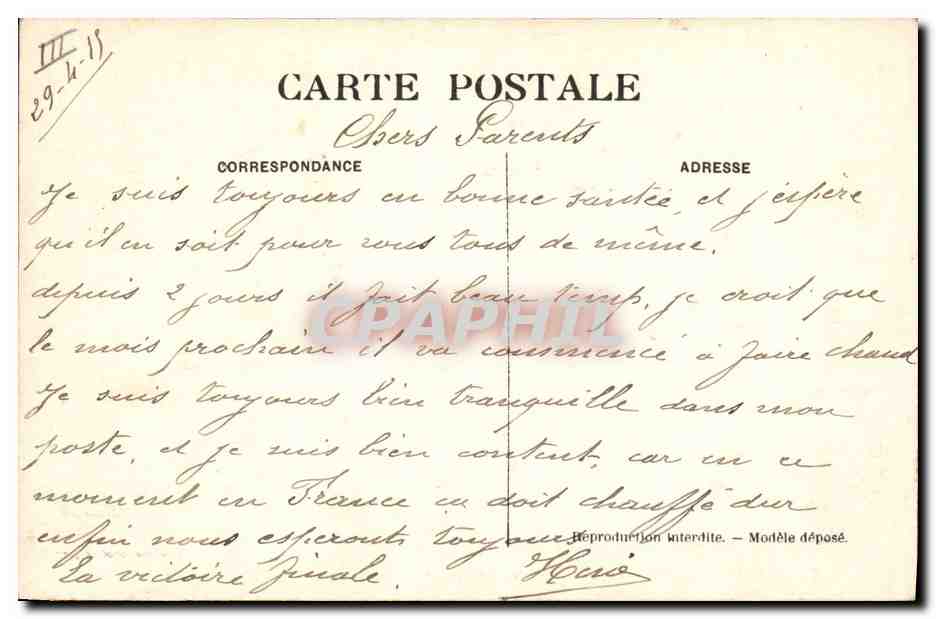 III
29-4-15
CARTE POSTALE
Chers Parents
CORRESPONDANCE
ADRESSE
Je suis toujours en bonne santée, et j'espère
qu'il en soit pour vous tous de même.
depuis 2 jours il fait beau temp, je croit que
le mois prochain il va commencé à faire chaud
Je suis toujours bien tranquille dans mon
poste, et je suis bien content, car en ce
moment en France ça doit chauffé dur
enfin nous esperont toujours
Réproduction interdite. — Modèle déposé.
la victoire finale.
CPAPHIL